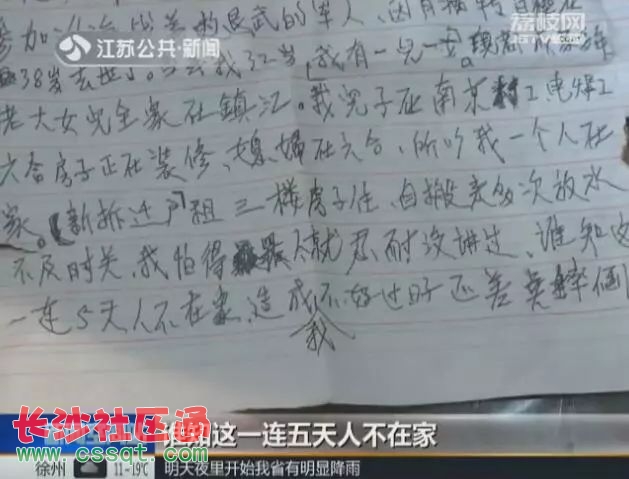 荔枝网
江苏公共·新闻
38岁去世了 我32岁 我有一儿一女
老大女儿全家在鎮江。我兒子在南京打工电焊工
六合房子正在装修、媳婦在六合、所以我一个人在
家。新拆迁户租三楼房子住、自搬来多次放水
不及时关、我怕得罪人就忍耐没讲过、谁知这
一连5天人不在家、造成我不好过日子还差点摔倒
谁知这一连五天人不在家
长沙社区通
www.cssqt.com
徐州 11~19℃ 明天夜里开始我省有明显降雨